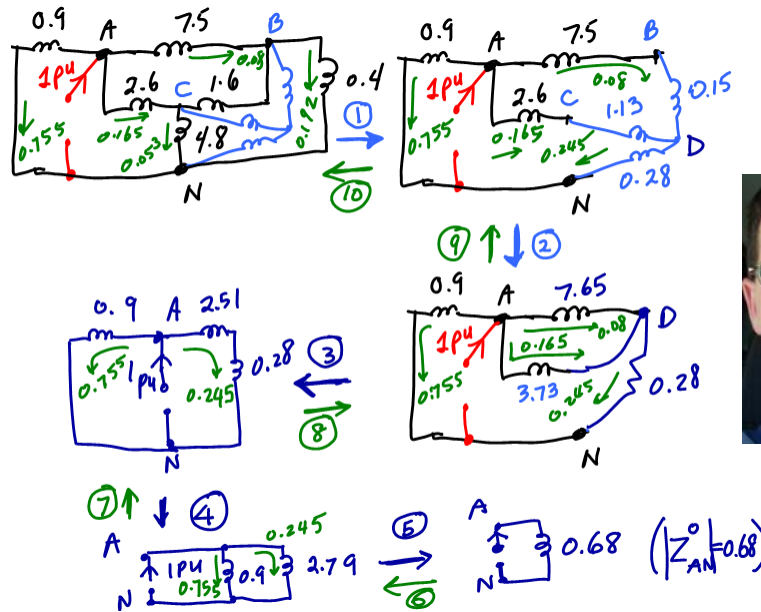 0.9 A 7.5 B
1pu 0.08
2.6 C 1.6 0.4
0.755 0.165 0.053 4.8 0.192
N
① ⑩
0.9 A 7.5 B
1pu 0.08 0.15
2.6 C 1.13
0.755 0.165 0.245 D
N 0.28
⑨ ②
0.9 A 7.65 D
1pu 0.165 0.08
0.755 3.73 0.245 0.28
N
③ ⑧
0.9 A 2.51
0.755 1pu 0.245 0.28
N
⑦ ④
A 0.245
1pu 0.755 0.9 2.79
N
⑤ ⑥
A
0.68 (|Z⁰AN|=0.68)
N